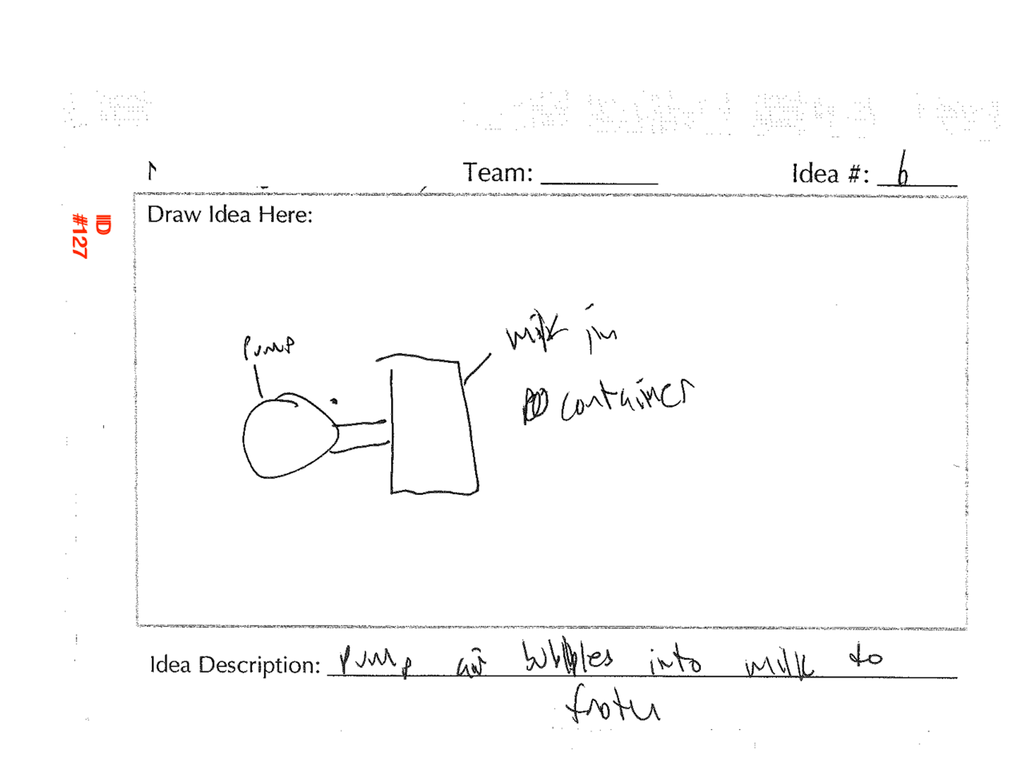 Team: Idea #: 6
Draw Idea Here:
IID
#127
Pump
milk in
container
Idea Description: Pump air bubbles into milk to
froth